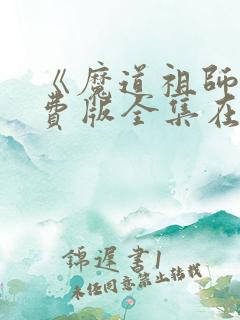 《魔道祖师
费版全集在
錦遲書1
未经同意禁止转载